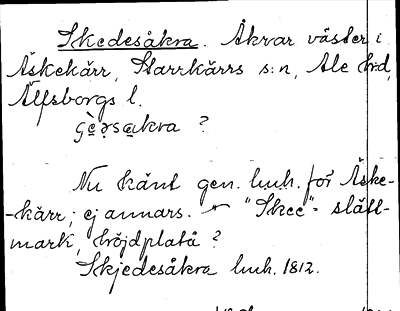 Skedesåkra. Åkrar väster i
Äskekärr, Starrkärrs s:n, Ale hd,
Älfsborgs l.
ɕè̞ə̣sa̲kra ?
Nu känt gen. huh. för Äske-
-kärr; ej annars. "Skee"- slätt-
mark, höjdplatå ?
Skjedesåkra huh. 1812.